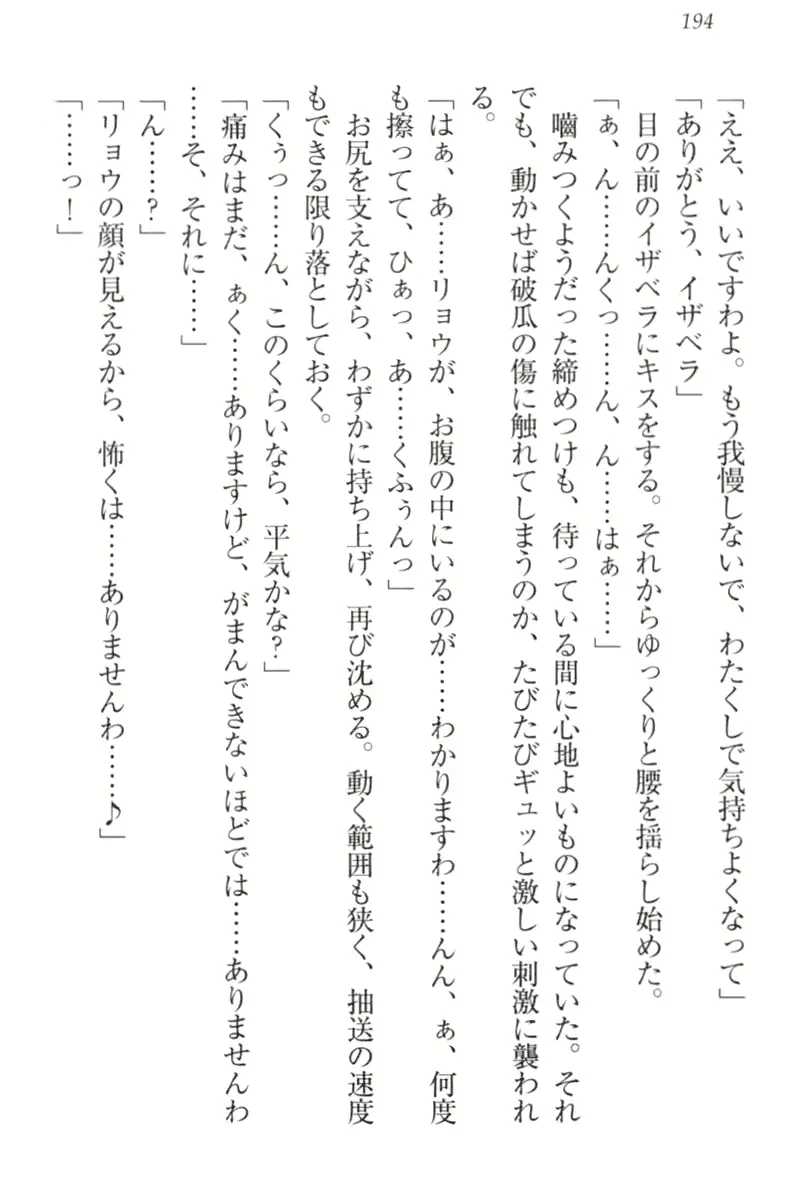 194
「ええ、いいですわよ。もう我慢しないで、わたくしで気持ちよくなって」
「ありがとう、イザベラ」
　目の前のイザベラにキスをする。それからゆっくりと腰を揺らし始めた。
「ぁ、ん……んくっ……ん、ん……はぁ……」
　嚙みつくようだった締めつけも、待っている間に心地よいものになっていた。それ
でも、動かせば破瓜の傷に触れてしまうのか、たびたびギュッと激しい刺激に襲われ
る。
「はぁ、あ……リョウが、お腹の中にいるのが……わかりますわ……んん、ぁ、何度
も擦ってて、ひぁっ、あ……くふぅんっ」
　お尻を支えながら、わずかに持ち上げ、再び沈める。動く範囲も狭く、抽送の速度
もできる限り落としておく。
「くぅっ……ん、このくらいなら、平気かな？」
「痛みはまだ、ぁく……ありますけど、がまんできないほどでは……ありませんわ
……そ、それに……」
「ん……？」
「リョウの顔が見えるから、怖くは……ありませんわ……♪」
「……っ！」